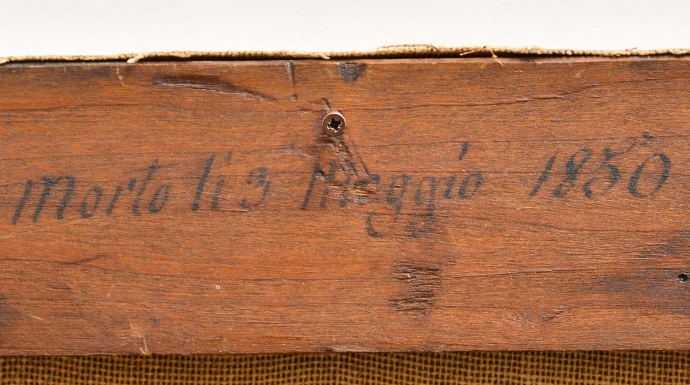 Morto li 3 Maggio 1850